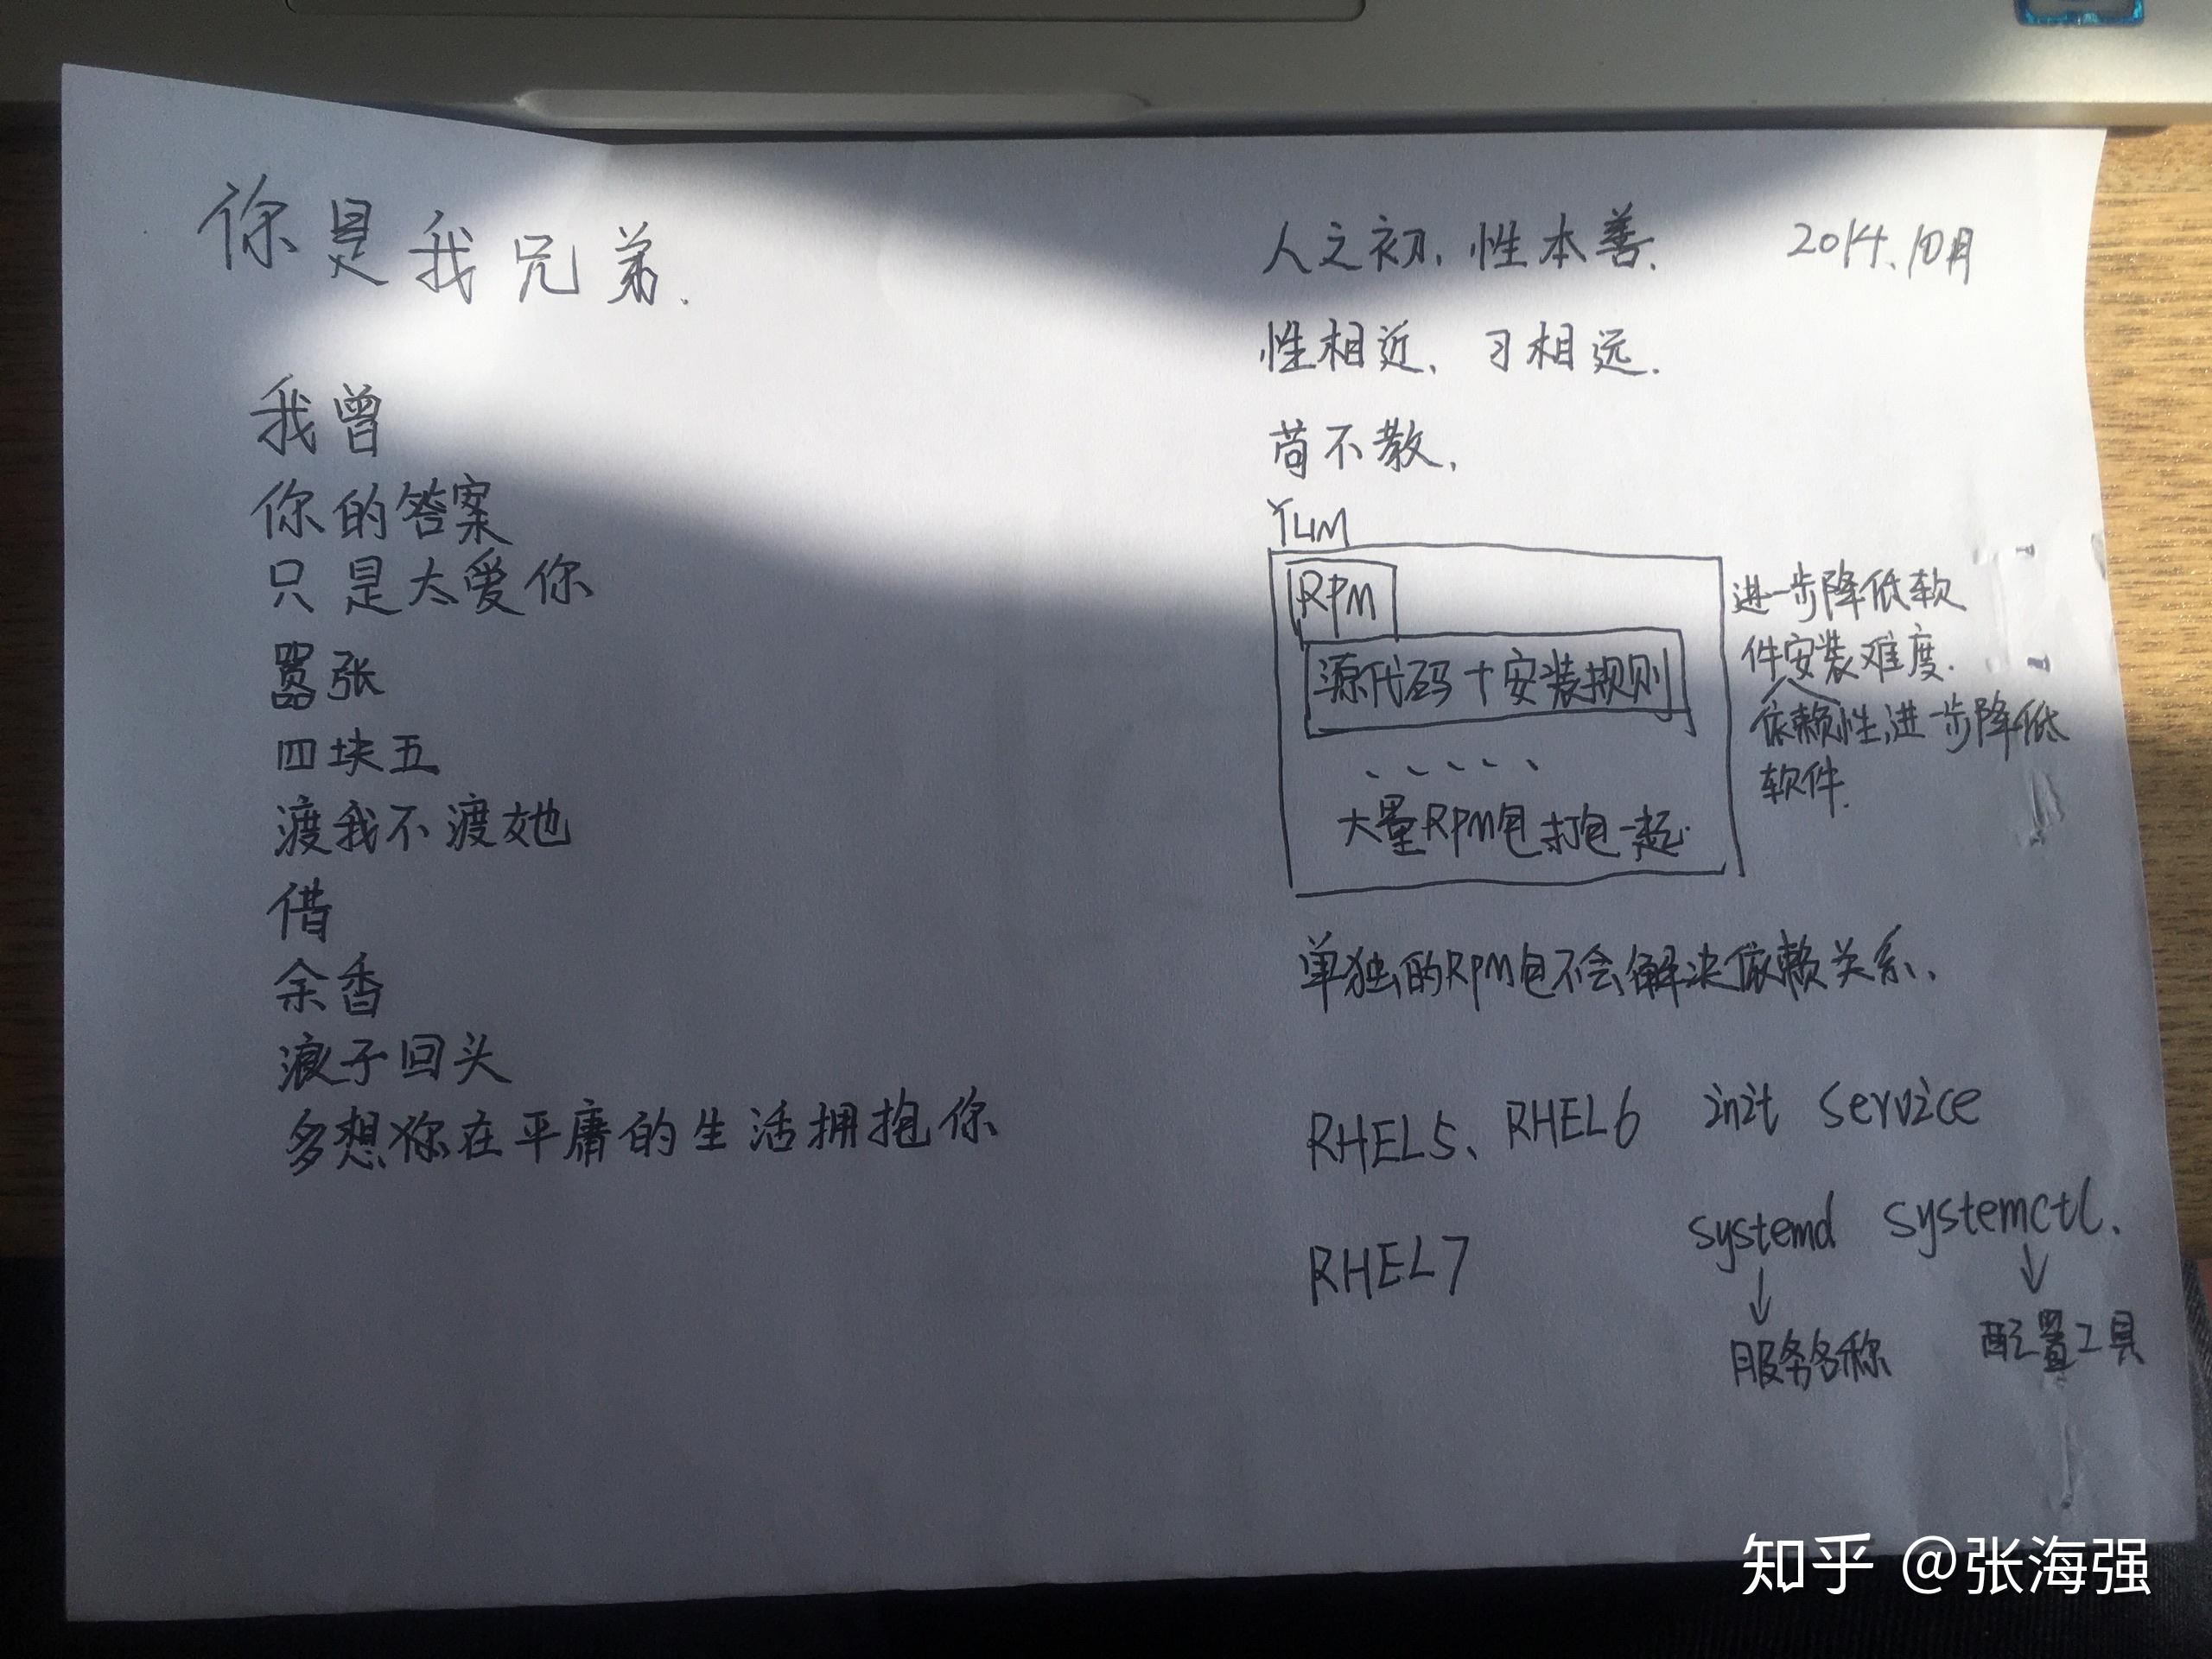 你是我兄弟.
我曾
你的答案
只是太爱你
嚣张
四块五
渡我不渡她
借
余香
浪子回头
多想你在平庸的生活拥抱你
人之初, 性本善. 2014.10月
性相近, 习相远.
苟不教,
YUM
RPM
源代码+安装规则
、、、、、
大量RPM包打包一起.
进一步降低软
件安装难度.
依赖性,进一步降低
软件.
单独的RPM包不会解决依赖关系、
RHEL5、RHEL6 init service
RHEL7 systemd systemctl.
↓ ↓
服务名称 配置工具
知乎 @张海强